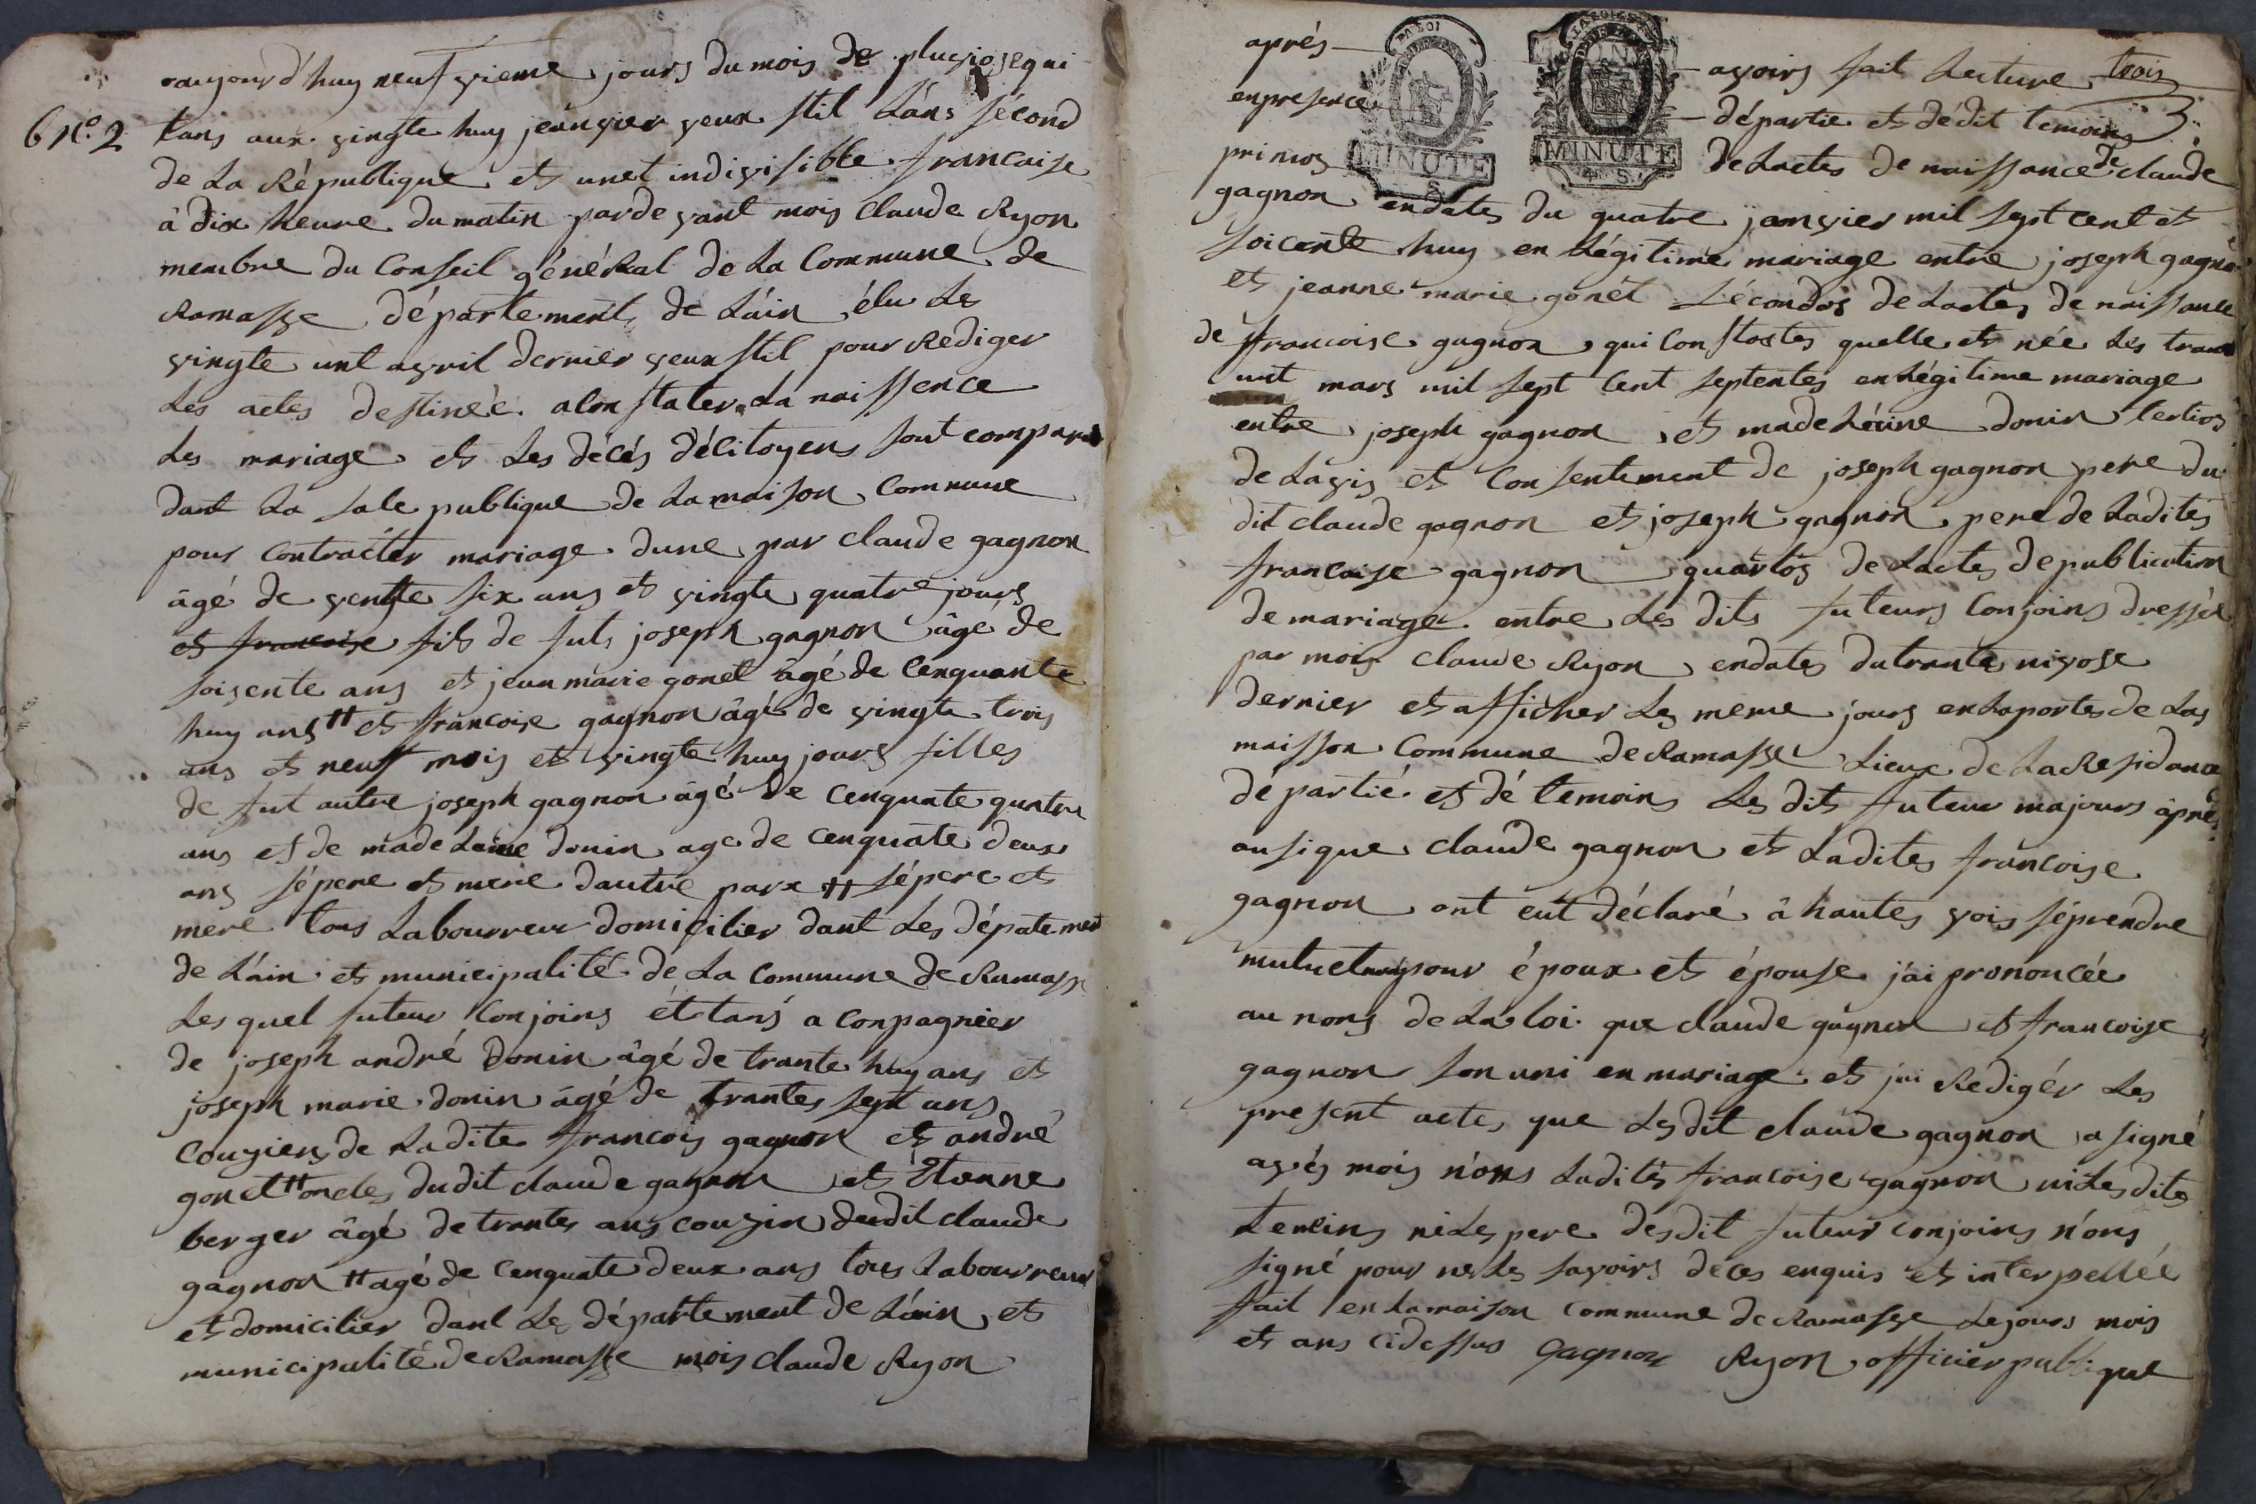 aujourd'huy neufvieme jours du mois de pluviose qui
6 No. 2 tans aux vingte huy jeanvier veux stil Láns sécond
de La République et unet indivisible francaise
â dix heure du matin pardevant mois Claude Ryon
membre du Conseil généRal de La Commune de
Ramasse département de Láin élu Les
vingte unt avril dernier veux stil pour Rediger
Les actes destinéé a Constater La naissence
Les mariage et Les décés décitoyens sont comparu
dant La sale publique de La maison Commune
pour Contracter mariage dune par claude gagnon
âgé de ventte six ans et vingte quatre jours
et francoise fils de fut joseph gagnon âgé de
soisente ans et jean marie gonet âgé de Cenquante
huy ans H et francoise gagnon âgé de vingte trois
ans et neuf mois et vingte huy jours filles
de fut autre joseph gagnon âgé de Cenquate quatre
ans et de made Leine donin age de cenquate deux
ans sépere et mere dautre parx H sépere et
mere tous Labourreur domicilier dant Les départemen
de Láin et municipalité de La Commune de Ramass
Les quel futeur Conjoins étetans a Conpagnier
de joseph andré donin âgé de trante huy ans et
joseph marie donin âgé de trantes sept ans
Cougiens de Ladite francois gagnon et andré
gonet H oncles dudit claude gagnon et Étienne
berger âgé de trantes ans cousin dudit claude
gagnon H agé de Cenquate deux ans tous Labourreur
et domicilier dant Le département de Láin et
municipalité de Ramasse mois claude Ryon
aprés avoirs fait Lecture trois
en presence départie et dédit temoins 3
primos de Lactes de naissance de claude
gagnon endates du quatre janvier mil sept cent et
soicente huy en Légitime mariage entre joseph gagno
et jeanne marie gonet sécondos de Lactes de naissance
de francoise gagnon qui Constates quelle et née Les trante
unt mars mil sept Cent septentes en Légitime mariage
entre joseph gagnon et made Leine donin tertios
de Lavis et Consentement de joseph gagnon pere du
dit claude gagnon et joseph gagnon pere de Ladites
francoise gagnon quartos de Lactes de publication
de mariage entre Les dits futeurs Conjoins dressée
par mois claude Ryon endates du trantes nivose
dernier et afficher Les meme jours en La portes de Las
maisson Commune de Ramasse Lieux de La Residance
départie et dé temoins Les dits futeur majours âpres
ausique claude gagnon et Ladites francoise
gagnon ont eut déclaré â hautes vois séprendre
mutuelmen pour époux et épouse j'ai prononcée
au nons de La loi que claude gagnon et francoise
gagnon son uni en mariage et jai Redigér Les
present actes que Ledit claude gagnon a signé
avés mois nóns Ladités francoise gagnon ni Les dites
temoins ni Les pere desdit futeur conjoins nóns
signé pour ne Les savoirs de ces enquis et interpellée
fait en La maison Commune de Ramasse Lejours mois
et ans cidessus Gagnon Ryon officier publique
MINUTE
MINUTE